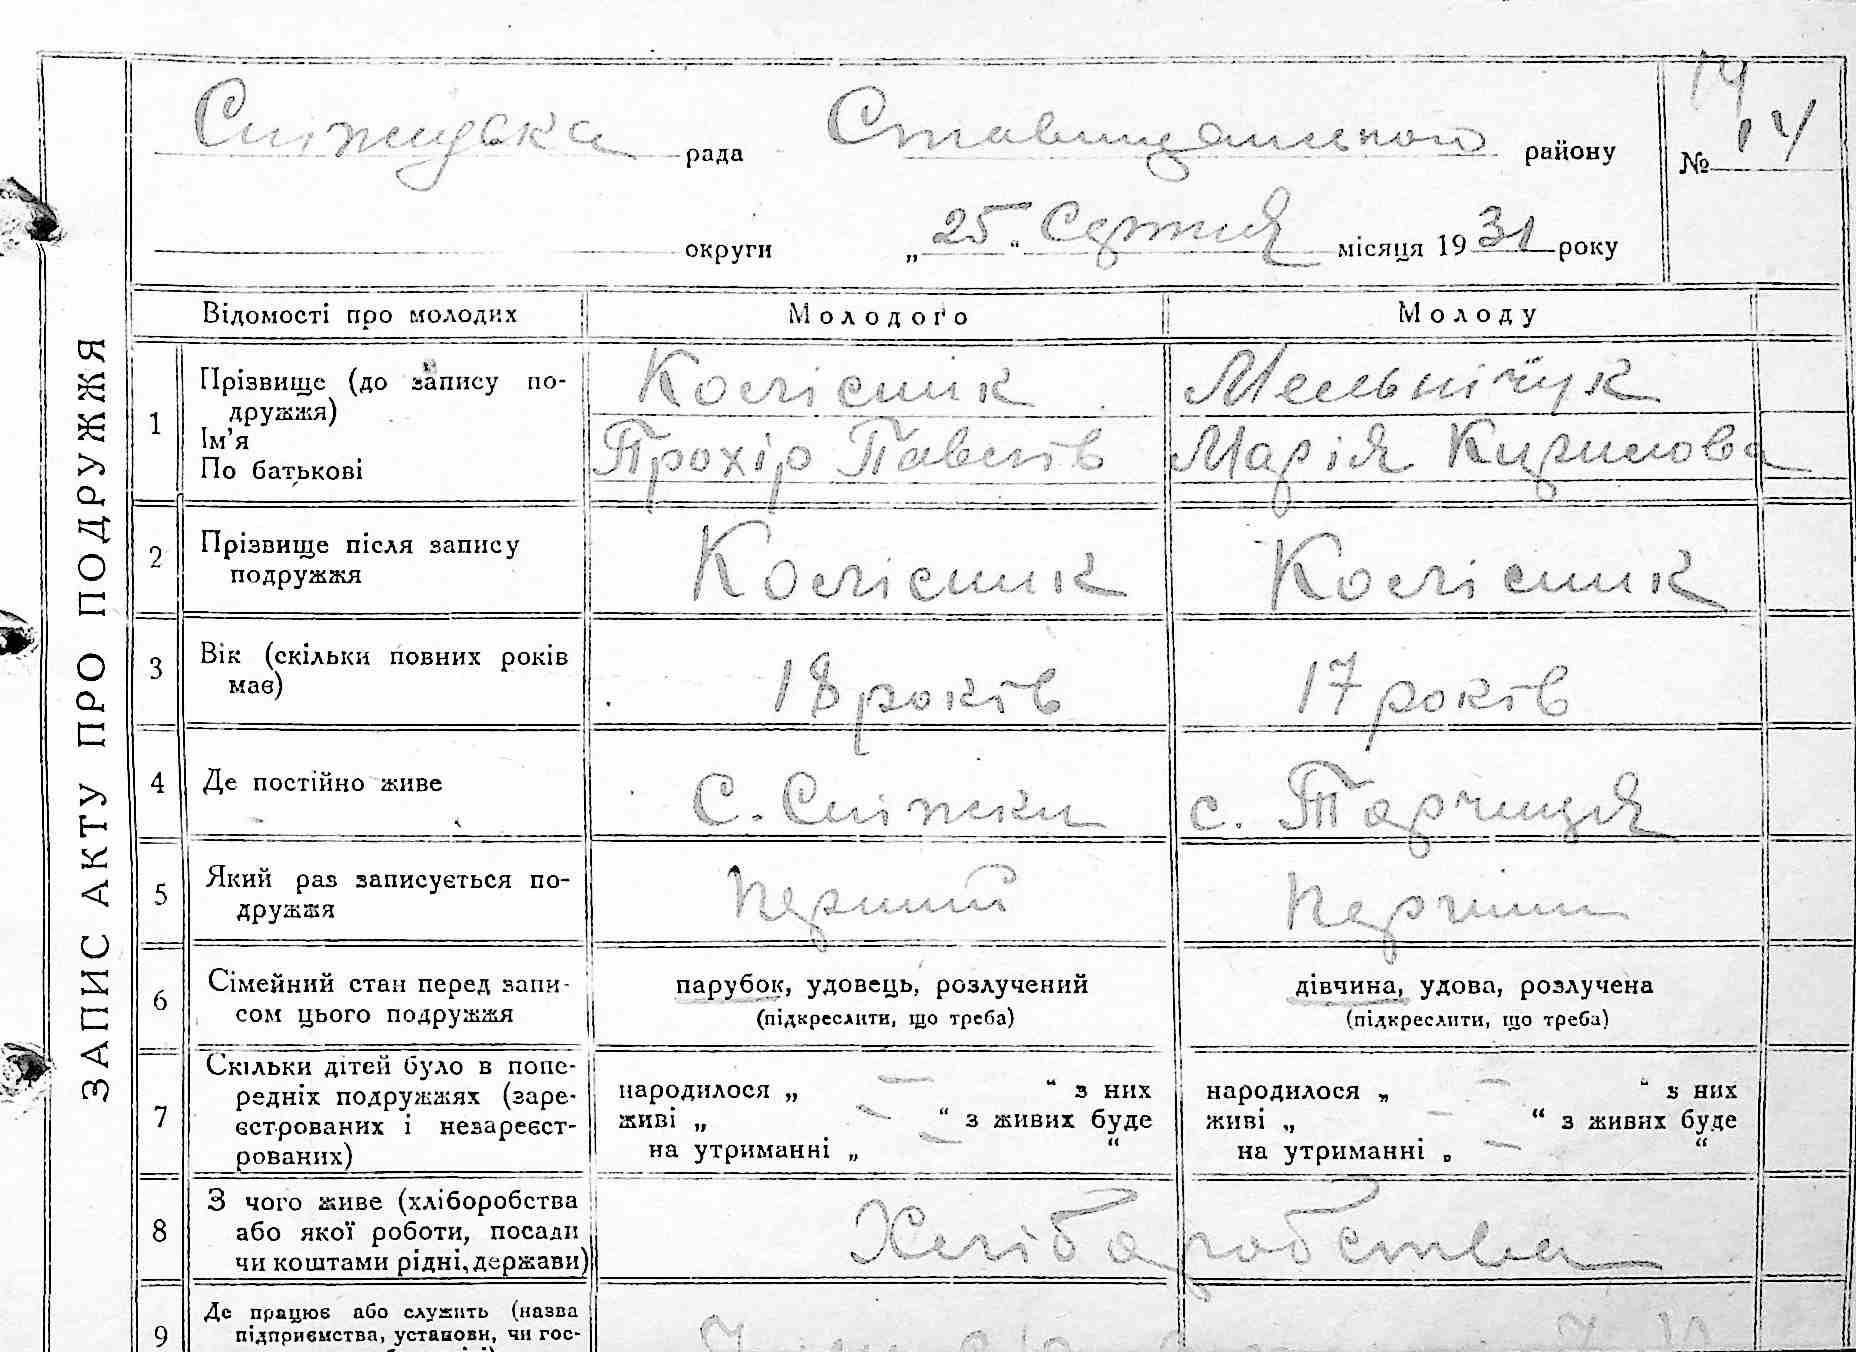 ЗАПИС АКТУ ПРО ПОДРУЖЖЯ
14
Сніжицька рада Ставищанського району № 14
округи „25“ Серпня місяця 1931 року
Відомості про молодих Молодого Молоду
1 Прізвище (до запису по-
дружжя) Колісник Мельнічук
Ім’я
По батькові Прохір Павлів Марія Кирилова
2 Прізвище після запису
подружжя Колісник Колісник
3 Вік (скільки повних років
має) 18 років 17 років
4 Де постійно живе С. Сніжки с. Тарчиця
5 Який раз записується по-
дружжя Перший Перший
6 Сімейний стан перед запи-
сом цього подружжя
парубок, удовець, розлучений
(підкреслити, що треба)
дівчина, удова, розлучена
(підкреслити, що треба)
7 Скільки дітей було в попе-
редніх подружжях (заре-
єстрованих і незареєст-
рованих)
народилося „ — “ з них
живі „ — “ з живих буде
на утриманні „ — “
народилося „ — “ з них
живі „ — “ з живих буде
на утриманні „ — “
8 З чого живе (хліборобства
або якої роботи, посади
чи коштами рідні, держави)
Хліборобства
9 Де працює або служить (назва
підприємства, установи, чи гос-